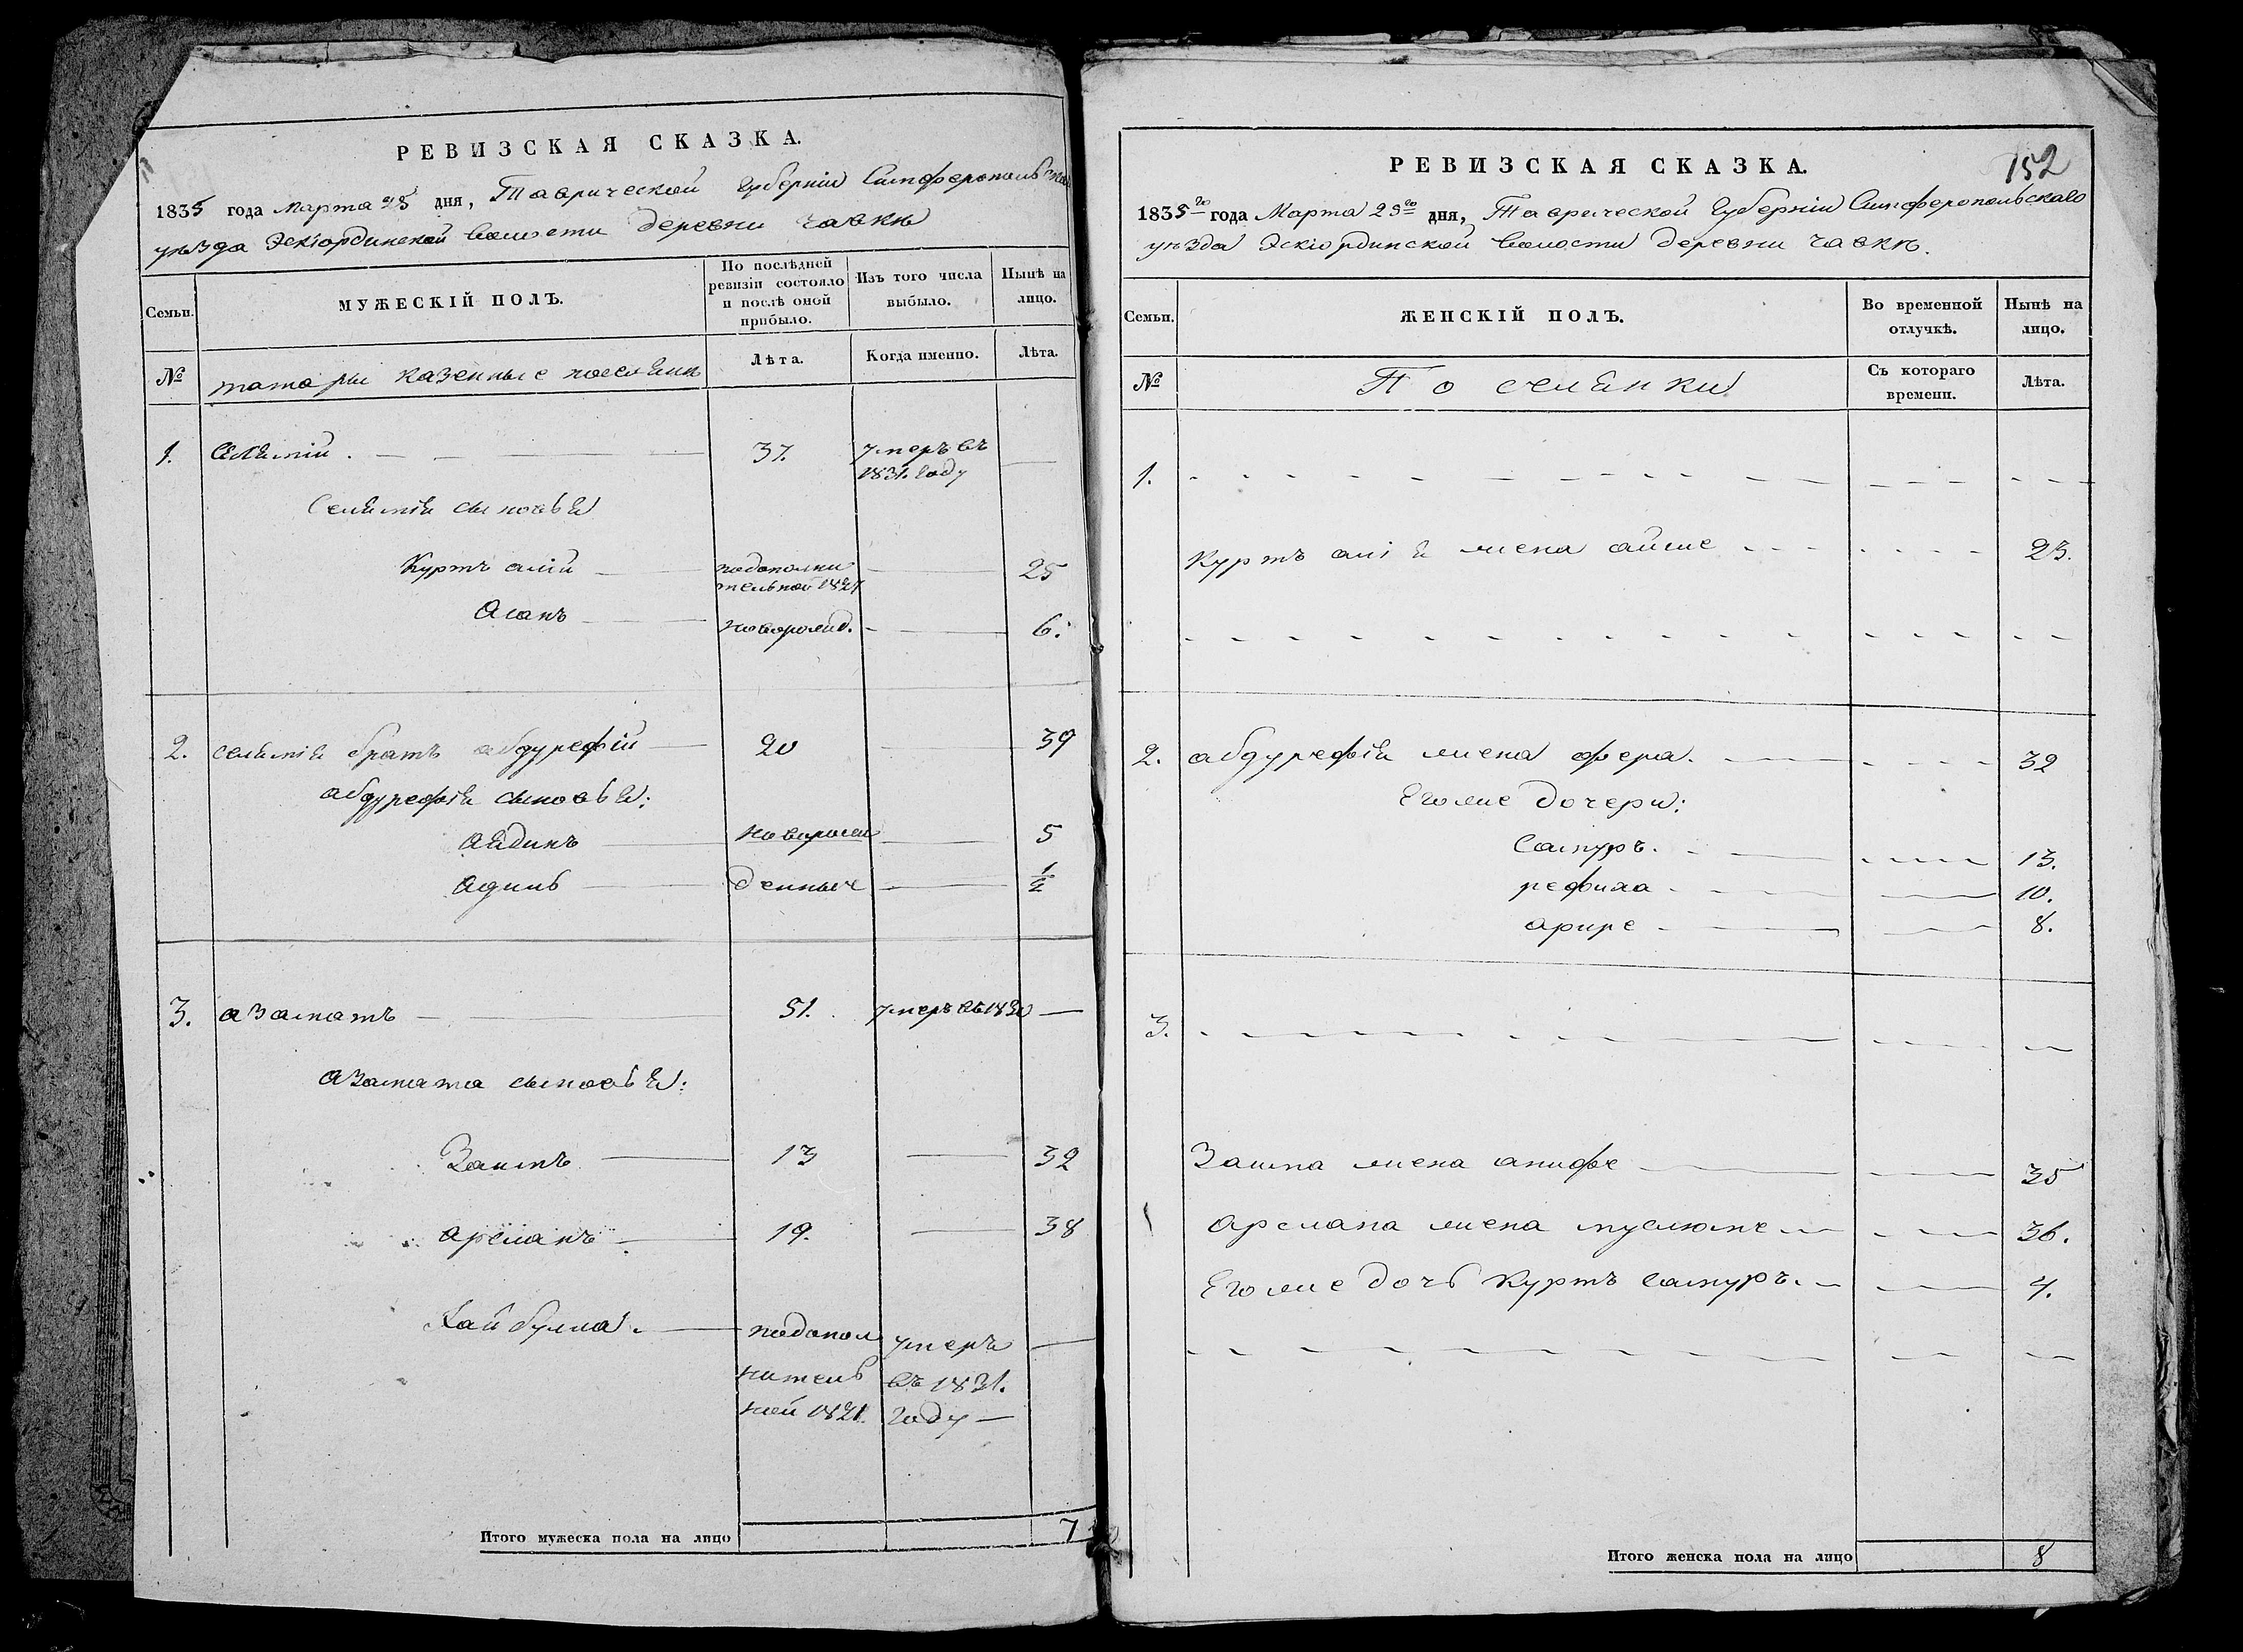 РЕВИЗСКАЯ СКАЗКА.
1835 года Марта 25 дня, Таврической Губерніи Симферопольскаго
уѣзда Эскіординской Волости деревни Чавкѣ
Семьи.
МУЖЕСКІЙ ПОЛЪ.
По послѣдней ревизіи состояло и послѣ оной прибыло.
Изъ того числа выбыло.
Нынѣ на лицо.
№
татары казенные поселяне
Лѣта.
Когда именно.
Лѣта.
1. Селяметъ 37. умеръ въ
1831. году
сыновья
Куртъ алій подополни 25
тельной 1821
Асанъ новорожд. 6.
2. братъ абдурефій 20 39
абдурефія сыновья:
Айдинъ новорож 5
Адиль денные 1/2
3. азаматъ 51. умеръ въ 1830
азамата сыновья:
Заитъ 13 32
арсланъ 19. 38
Хайбулла подопол умеръ
нитель въ 1831.
ной 1821. году
Итого мужеска пола на лицо 7
152
РЕВИЗСКАЯ СКАЗКА.
1835го года Марта 25го дня, Таврической Губерніи Симферопольскаго
уѣзда Эскіординской Волости деревни Чавкѣ.
Семьи.
ЖЕНСКІЙ ПОЛЪ.
Во временной отлучкѣ.
Нынѣ на лицо.
№
Поселянки
Съ котораго времени.
Лѣта.
1.
Куртъ алія жена айше 23.
2. абдурефія жена фера. 32
Его же дочери:
Сампуръ. 13.
рефиха 10.
арире 8.
3.
жена анифе 35
арслана жена муслюме 36.
Его же дочь Куртъ сампуръ. 4.
Итого женска пола на лицо 8